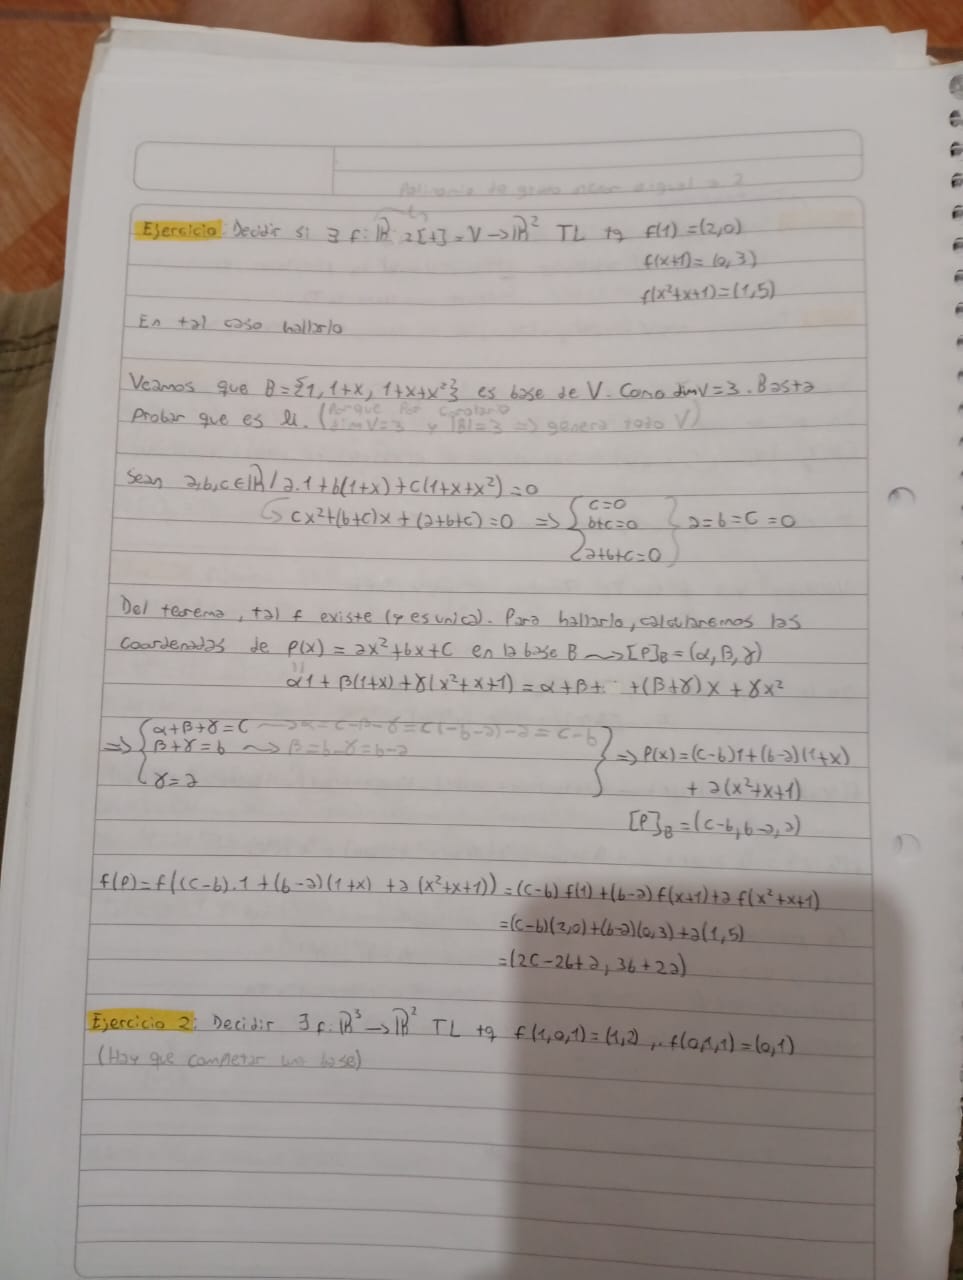 Polinomio de grado menor o igual a 2
Ejercicio: Decidir si ∃ f: ℝ 2[x] = V → ℝ² TL tq f(1) = (2,0)
f(x+1) = (0,3)
f(x²+x+1) = (1,5)
En tal caso hallarlo
Veamos que B = {1, 1+x, 1+x+x²} es base de V. Como dim V = 3. Basta
Probar que es li. (Porque Por Corolario
dim V=3 y |B|=3 => genera todo V)
Sean a,b,c ∈ ℝ / a.1 + b(1+x) + c(1+x+x²) = 0
cx² + (b+c)x + (a+b+c) = 0 => { c=0
b+c=0 } a=b=c=0
a+b+c=0
Del teorema, tal f existe (y es unica). Para hallarlo, calcularemos las
coordenadas de P(x) = ax²+bx+c en la base B ⇝ [P]_B = (α, β, γ)
α1 + β(1+x) + γ(x²+x+1) = α+β+ +(β+γ)x + γx²
=> { α+β+γ=c ⇝ α=c-β-γ=c(-b-a)-a=c-b
β+γ=b ⇝ β=b-γ=b-a } => P(x) = (c-b)1+(b-a)(1+x)
γ=a + a(x²+x+1)
[P]_B = (c-b, b-a, a)
f(P) = f((c-b).1 + (b-a)(1+x) + a(x²+x+1)) = (c-b) f(1) + (b-a) f(x+1) + a f(x²+x+1)
= (c-b)(2,0) + (b-a)(0,3) + a(1,5)
= (2c-2b+a, 3b+2a)
Ejercicio 2: Decidir ∃ f: ℝ³ → ℝ² TL tq f(1,0,1) = (1,2), f(0,1,1) = (0,1)
(Hay que competar un base)